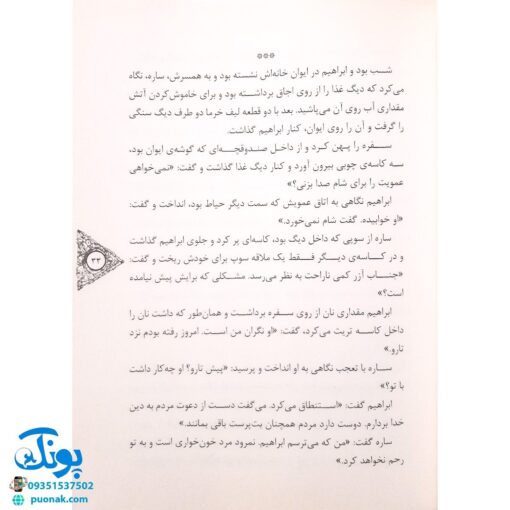 ***
شب بود و ابراهیم در ایوان خانه‌اش نشسته بود و به همسرش، ساره، نگاه
می‌کرد که دیگ غذا را از روی اجاق برداشته بود و برای خاموش‌کردن آتش
مقداری آب روی آن می‌پاشید. بعد با دو قطعه لیف خرما دو طرف دیگ سنگی
را گرفت و آن را روی ایوان، کنار ابراهیم گذاشت.
سفره را پهن کرد و از داخل صندوقچه‌ای که گوشه‌ی ایوان بود،
سه کاسه‌ی چوبی بیرون آورد و کنار دیگ غذا گذاشت و گفت: «نمی‌خواهی
عمویت را برای شام صدا بزنی؟»
ابراهیم نگاهی به اتاق عمویش که سمت دیگر حیاط بود، انداخت و گفت:
«او خوابیده. گفت شام نمی‌خورد.»
ساره از سوپی که داخل دیگ بود، کاسه‌ای پر کرد و جلوی ابراهیم گذاشت
و در کاسه‌ی دیگر فقط یک ملاقه سوپ برای خودش ریخت و گفت:
«جناب آزر کمی ناراحت به نظر می‌رسد. مشکلی که برایش پیش نیامده
است؟»
ابراهیم مقداری نان از روی سفره برداشت و همان‌طور که داشت نان را
داخل کاسه تریت می‌کرد، گفت: «او نگران من است. امروز رفته بودم نزد
تارو.»
ساره با تعجب نگاهی به او انداخت و پرسید: «پیش تارو؟ او چه‌کار داشت
با تو؟»
ابراهیم گفت: «استنطاق می‌کرد. می‌گفت دست از دعوت مردم به دین
خدا بردارم. دوست دارد مردم همچنان بت‌پرست باقی بمانند.»
ساره گفت: «من که می‌ترسم ابراهیم. نمرود مرد خون‌خواری است و به تو
رحم نخواهد کرد.»
۳۳
پونک
09351537502
puonak.com